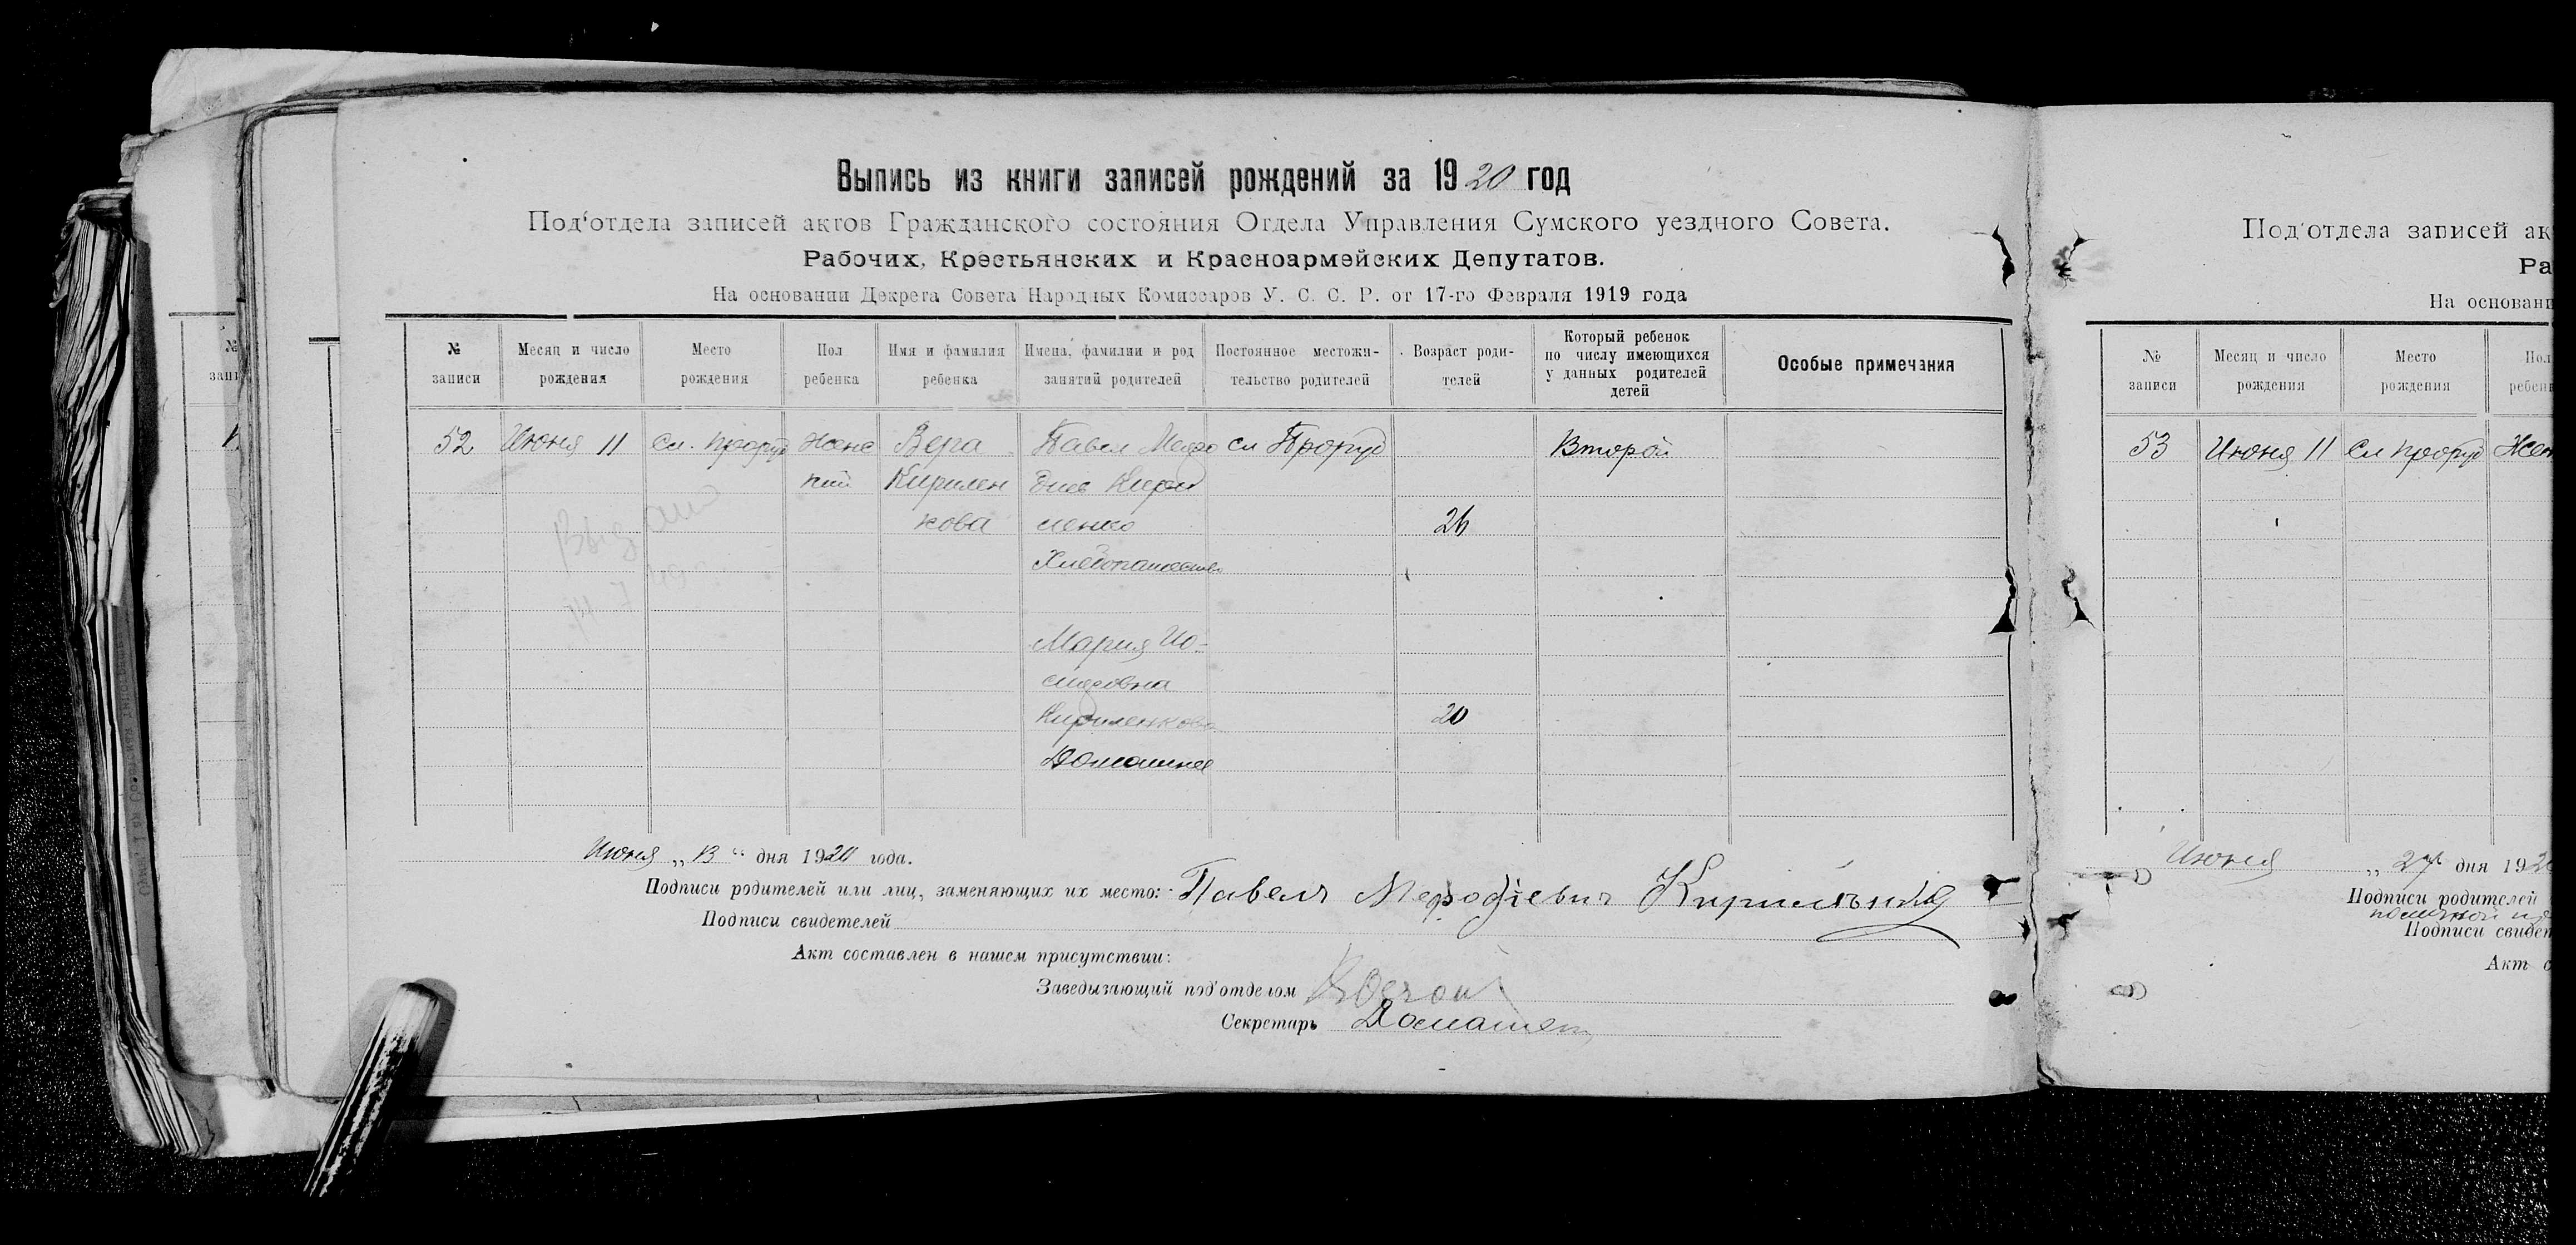 Выпись из книги записей рождений за 1920 год
Под'отдела записей актов Гражданского состояния Отдела Управления Сумского уездного Совета.
Рабочих, Крестьянских и Красноармейских Депутатов.
На основании Декрета Совета Народных Комиссаров У. С. С. Р. от 17-го Февраля 1919 года
№ записи
Месяц и число рождения
Место рождения
Пол ребенка
Имя и фамилия ребенка
Имена, фамилии и род занятий родителей
Постоянное местожительство родителей
Возраст родителей
Который ребенок по числу имеющихся у данных родителей детей
Особые примечания
52
Июня 11
Сл. Проруб
Женс
кий
Вера
Кирилен
кова
Павел Мефо
диев Кири
ленко
Хлебопашество
Мария Ио-
сифовна
Кириленкова
Домашнее
сл Проруб
26
20
Второй
Июня „ 13 “ дня 1920 года.
Подписи родителей или лиц, заменяющих их место: Павелъ Мефодіевич
Подписи свидетелей
Акт составлен в нашем присутствии:
Заведывающий под'отделом
Секретарь
Под'отдела записей ак
Ра
На основани
№ записи
Месяц и число рождения
Место рождения
Пол ребен
53
Июня 11
Сл Проруб
Жен
Июня „ 27 дня 192
Подписи родителей
Подписи свидет
Акт с